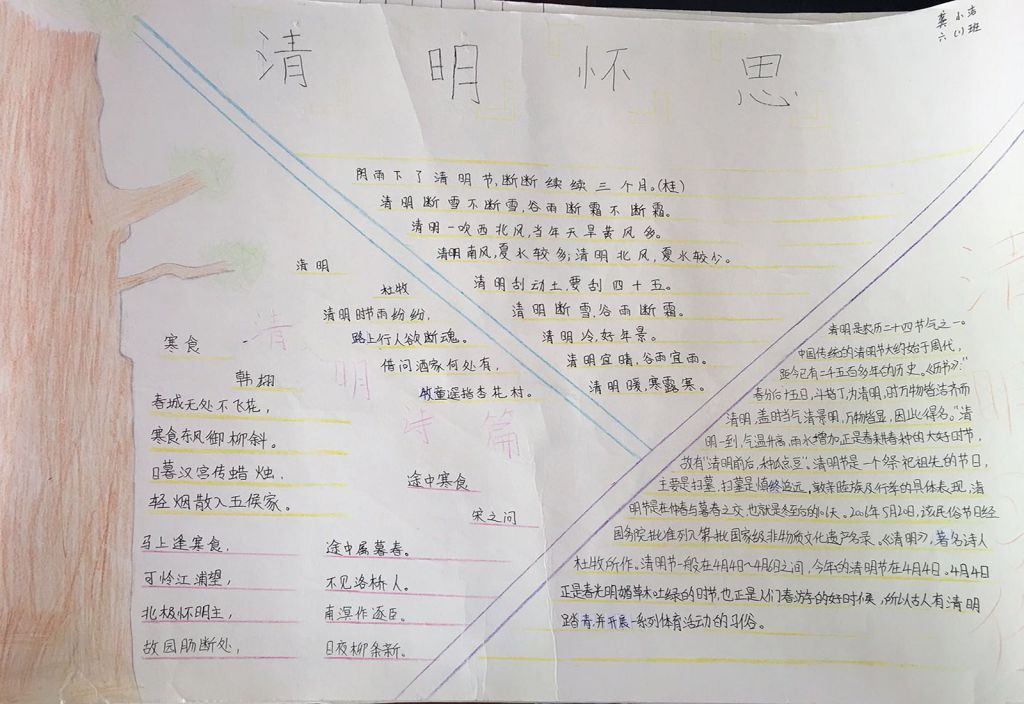 龚小洁
六(1)班
清明怀思
阴雨下了清明节,断断续续三个月。(桂)
清明断雪不断雪,谷雨断霜不断霜。
清明一吹西北风,当年天旱黄风多。
清明南风,夏水较多;清明北风,夏水较少。
清明刮动土,要刮四十五。
清明断雪,谷雨断霜。
清明冷,好年景。
清明宜晴,谷雨宜雨。
清明暖,寒露寒。
清明
杜牧
清明时节雨纷纷,
路上行人欲断魂。
借问酒家何处有,
牧童遥指杏花村。
寒食
韩翃
春城无处不飞花,
寒食东风御柳斜。
日暮汉宫传蜡烛,
轻烟散入五侯家。
清明诗篇
途中寒食
宋之问
马上逢寒食,途中属暮春。
可怜江浦望,不见洛桥人。
北极怀明主,南溟作逐臣。
故园肠断处,日夜柳条新。
清明是农历二十四节气之一。
中国传统的清明节大约始于周代,
距今已有二千五百多年的历史。《历书》:"
春分后十五日,斗指丁,为清明,时万物皆洁齐而
清明,盖时当气清景明,万物皆显,因此得名。"清
明一到,气温升高,雨水增加正是春耕春种的大好时节,
故有"清明前后,种瓜点豆"。清明节是一个祭祀祖先的节日,
主要是扫墓,扫墓是慎终追远,敦亲睦族及行孝的具体表现,清
明节是在仲春与暮春之交,也就是冬至后的108天。2006年5月20日,该民俗节日经
国务院批准列入第一批国家级非物质文化遗产名录。《清明》,著名诗人
杜牧所作。清明节一般在4月4日~4月6日之间,今年的清明节在4月4日。4月4日
正是春光明媚草木吐绿的时节,也正是人们春游的好时候,所以古人有清明
踏青,并开展一系列体育活动的习俗。